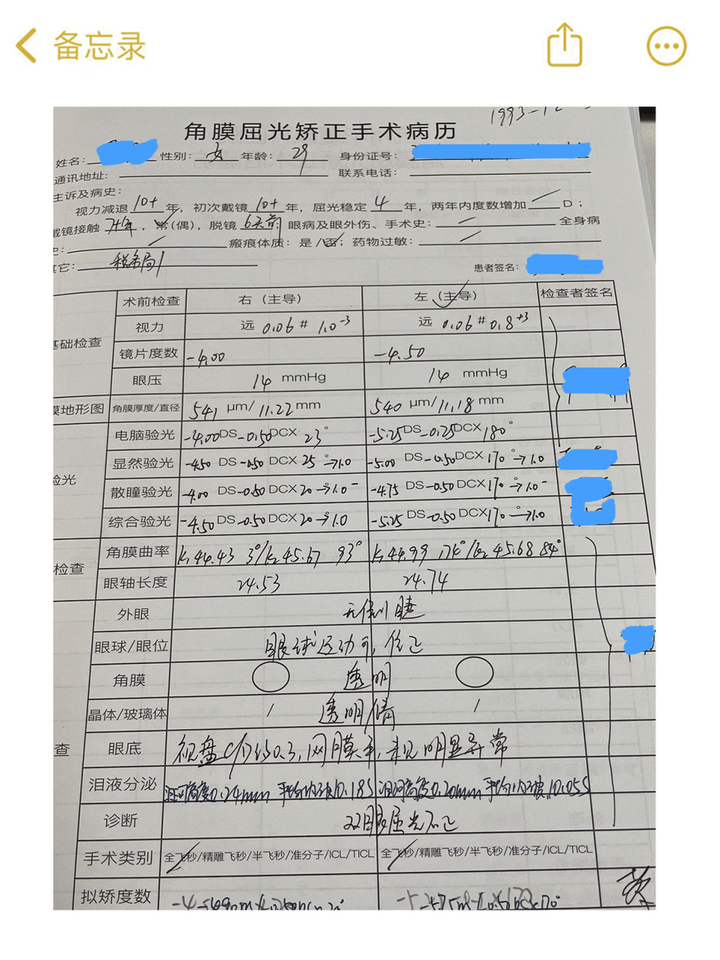 备忘录
角膜屈光矫正手术病历
姓名: 性别: 女 年龄: 29 身份证号:
通讯地址: 联系电话:
主诉及病史:
视力减退 10+ 年，初次戴镜 10+ 年，屈光稳定 4 年，两年内度数增加 D；
戴镜接触 年，常(偶)，脱镜 6天前；眼病及眼外伤、手术史： 全身病
史： 瘢痕体质：是/否；药物过敏：
其它: 税务局
患者签名:
术前检查 右（主导） 左（主导） 检查者签名
基础检查 视力 远 0.06 # 1.0-3 远 0.06 # 0.8+3
镜片度数 -4.00 -4.50
眼压 14 mmHg 14 mmHg
膜地形图 角膜厚度/直径 541 μm/ 11.22 mm 540 μm/ 11.18 mm
电脑验光 -4.00 DS -0.50 DCX 23° -5.25 DS -0.25 DCX 180°
验光 显然验光 -4.50 DS -0.50 DCX 25°→1.0 -5.00 DS -0.50 DCX 170°→1.0
散瞳验光 -4.00 DS -0.50 DCX 20→1.0- -4.75 DS -0.50 DCX 170°→1.0-
综合验光 -4.50 DS -0.50 DCX 20→1.0 -5.25 DS -0.50 DCX 170°→1.0
检查 角膜曲率 K1 44.43 3°/K2 45.67 93° K1 44.99 174°/K2 45.68 84°
眼轴长度 24.53 24.74
外眼 无倒睫
眼球/眼位 眼球运动可，位正
角膜 透明
晶体/玻璃体 / 透明/清 /
查 眼底 视盘C/D约0.3，网膜平，未见明显异常
泪液分泌 泪河高度0.24mm 平均 10.18S 泪河高度0.20mm 平均 10.05S
诊断 双眼屈光不正
手术类别 全飞秒/精雕飞秒/半飞秒/准分子/ICL/TICL 全飞秒/精雕飞秒/半飞秒/准分子/ICL/TICL
拟矫度数